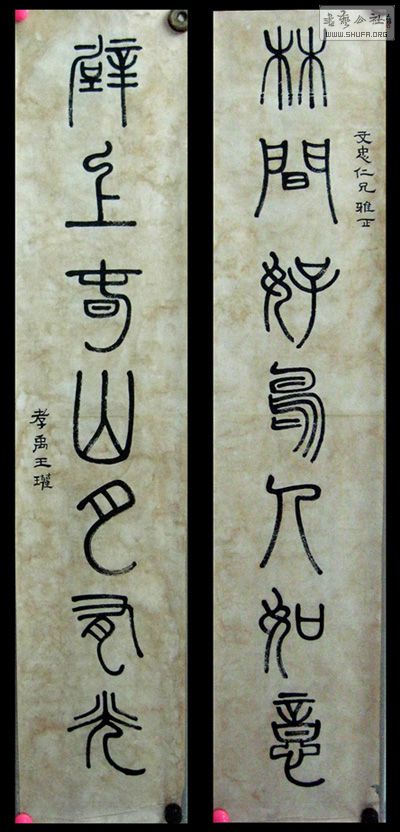 書藝公社
WWW.SHUFA.ORG
林間好鳥人如意
文忠仁兄雅正
壁上奇山月有光
孝禹王瓘